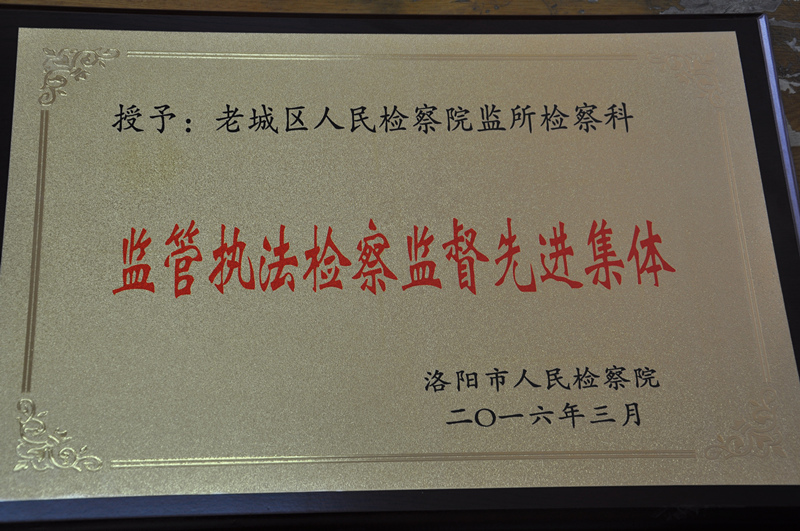 授予：老城区人民检察院监所检察科
监管执法检察监督先进集体
洛阳市人民检察院
二〇一六年三月